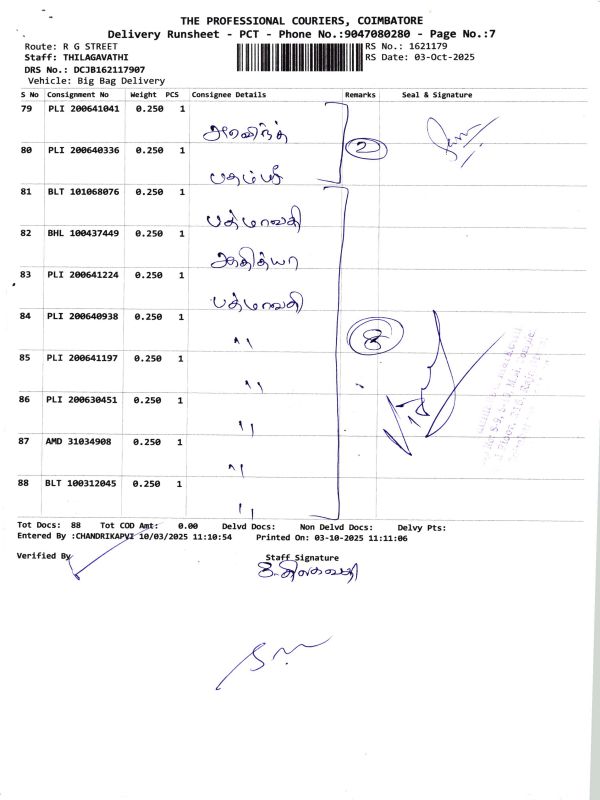 THE PROFESSIONAL COURIERS, COIMBATORE
Delivery Runsheet - PCT - Phone No.:9047080280 - Page No.:7
Route: R G STREET RS No.: 1621179
Staff: THILAGAVATHI RS Date: 03-Oct-2025
DRS No.: DCJB162117907
Vehicle: Big Bag Delivery
S No Consignment No Weight PCS Consignee Details Remarks Seal & Signature
79 PLI 200641041 0.250 1
80 PLI 200640336 0.250 1 2
81 BLT 101068076 0.250 1 பத்மாவதி
82 BHL 100437449 0.250 1 அதித்யா
83 PLI 200641224 0.250 1 பத்மாவதி
84 PLI 200640938 0.250 1 " 8
85 PLI 200641197 0.250 1 "
86 PLI 200630451 0.250 1 "
87 AMD 31034908 0.250 1 "
88 BLT 100312045 0.250 1 "
Tot Docs: 88 Tot COD Amt: 0.00 Delvd Docs: Non Delvd Docs: Delvy Pts:
Entered By :CHANDRIKAPVI 10/03/2025 11:10:54 Printed On: 03-10-2025 11:11:06
Verified By Staff Signature